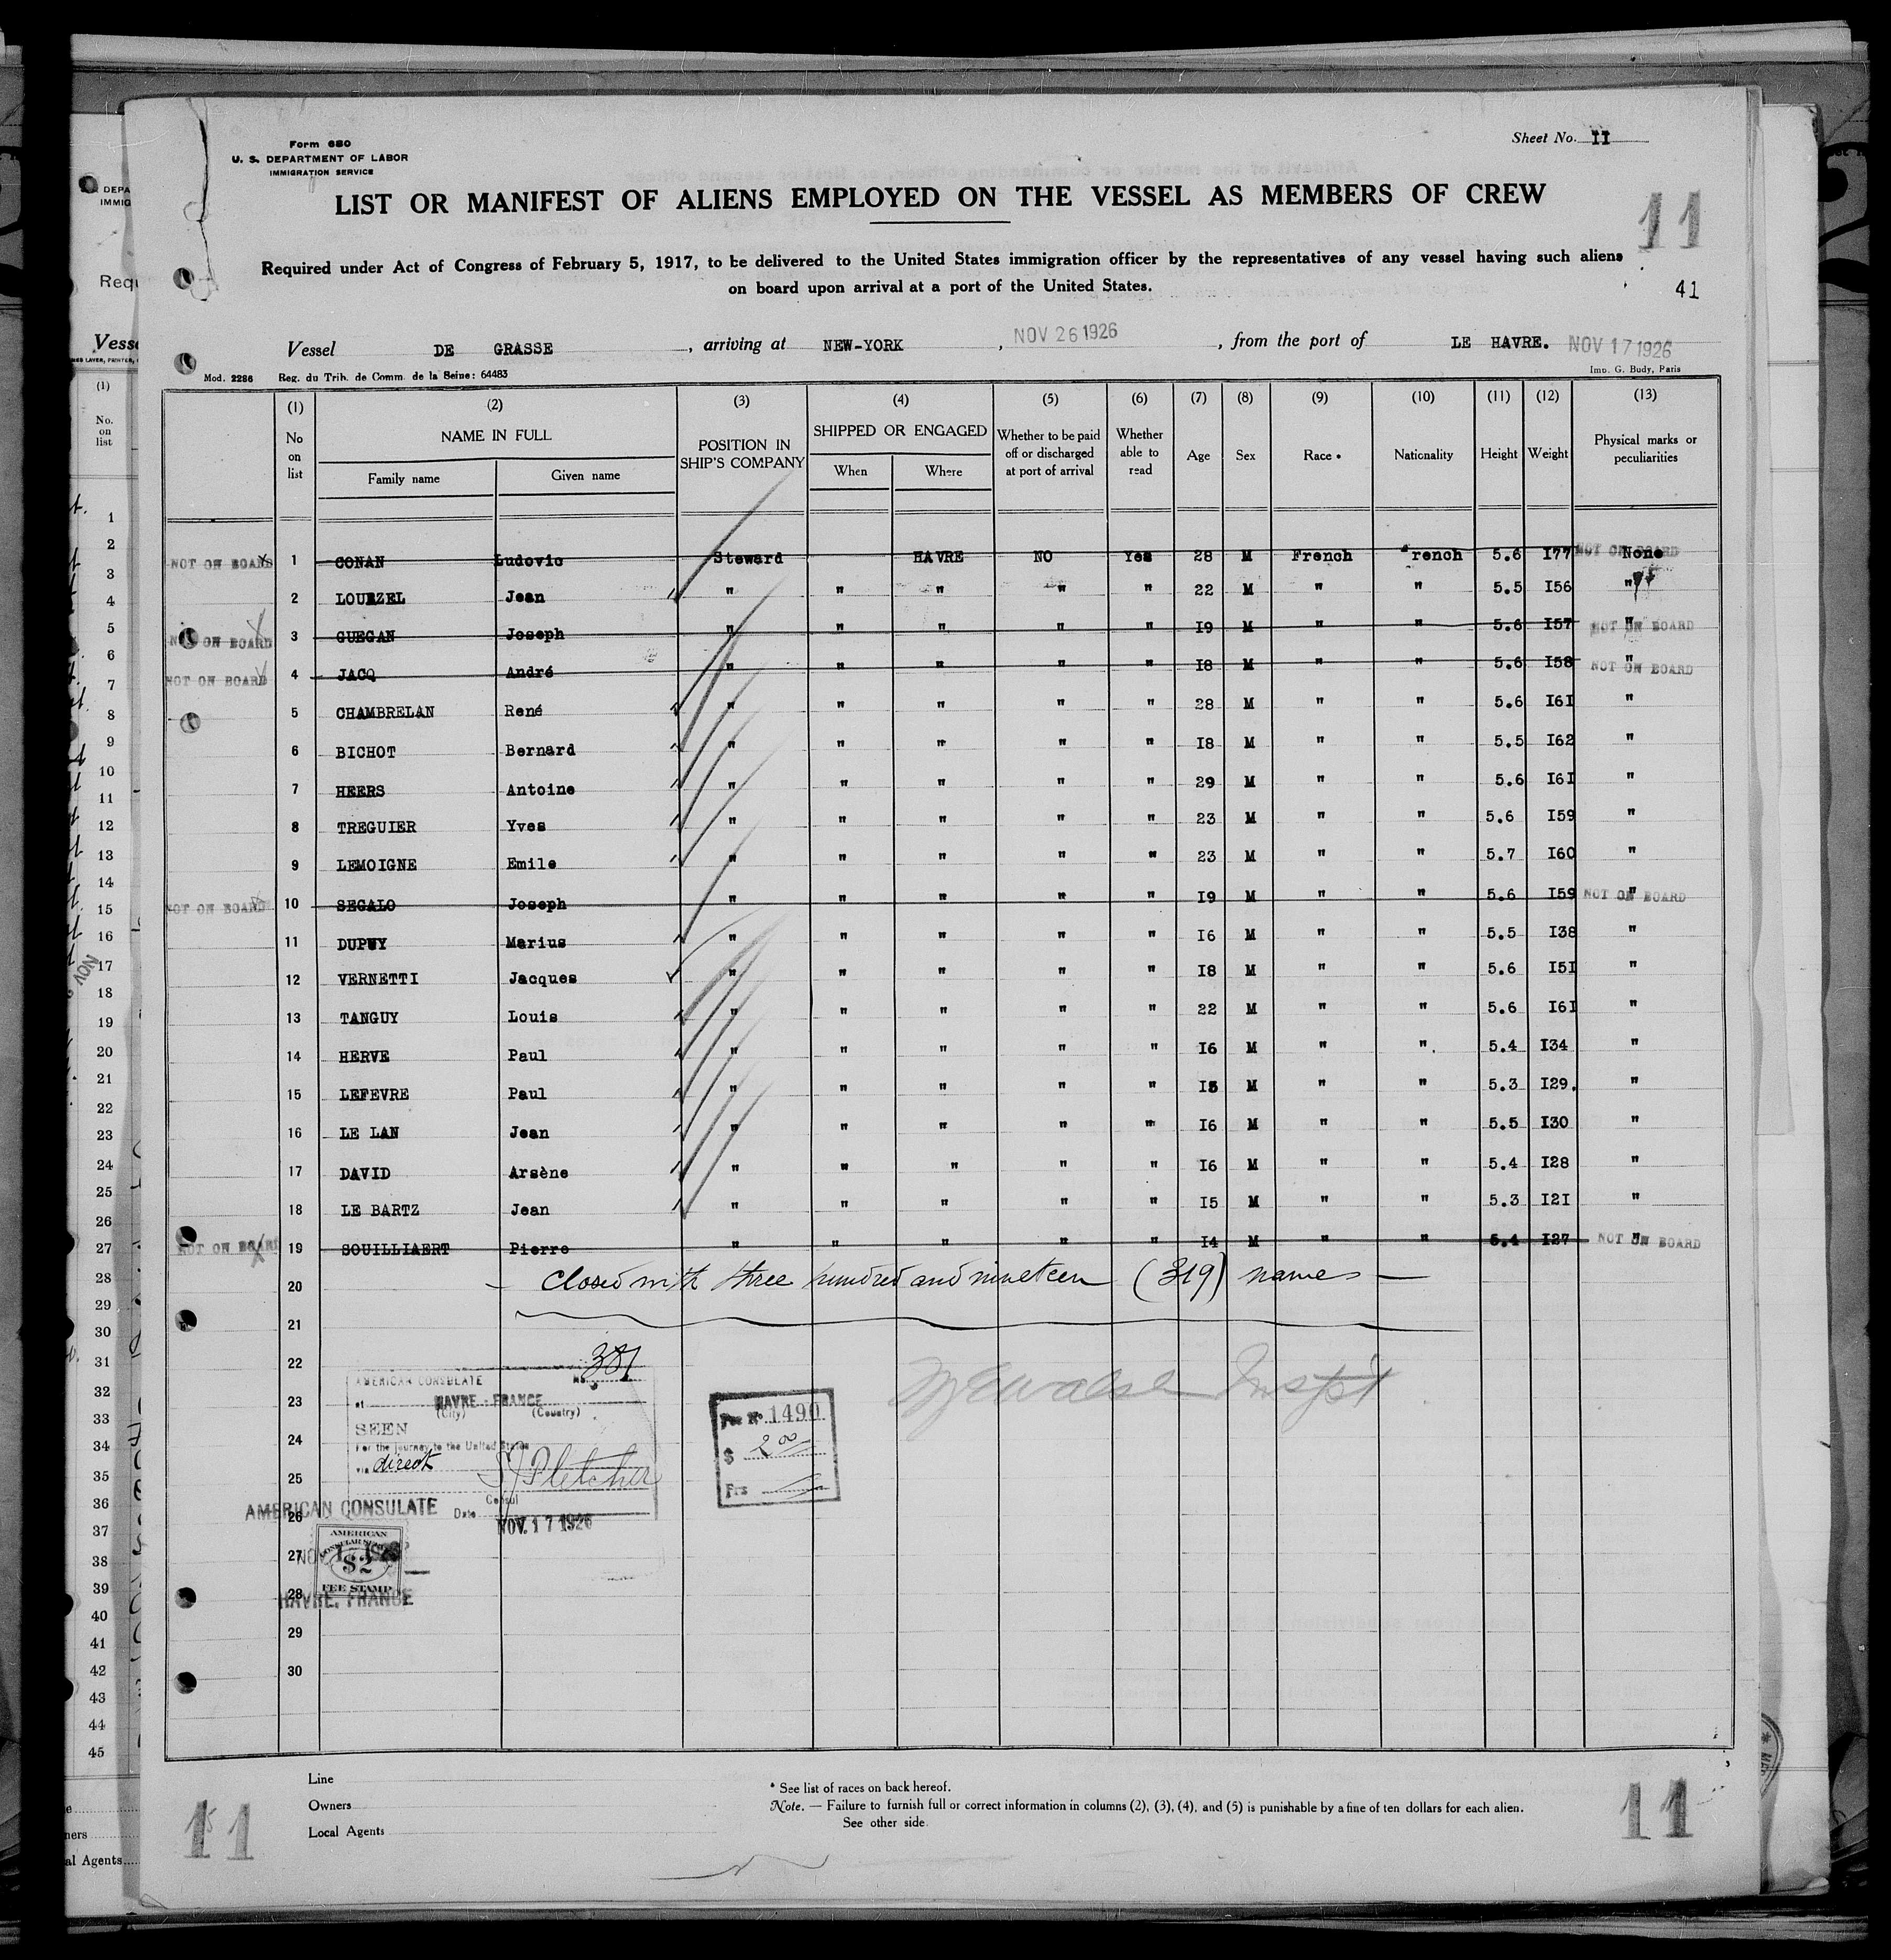 Form 680
U. S. DEPARTMENT OF LABOR
IMMIGRATION SERVICE
Sheet No. II
LIST OR MANIFEST OF ALIENS EMPLOYED ON THE VESSEL AS MEMBERS OF CREW
11
Required under Act of Congress of February 5, 1917, to be delivered to the United States immigration officer by the representatives of any vessel having such aliens
on board upon arrival at a port of the United States.
41
Vessel DE GRASSE , arriving at NEW-YORK , NOV 26 1926 , from the port of LE HAVRE. NOV 17 1926
Mod. 2286 Reg. du Trib. de Comm. de la Seine: 64483 Imp. G. Budy, Paris
(1) (2) (3) (4) (5) (6) (7) (8) (9) (10) (11) (12) (13)
No on list NAME IN FULL Family name Given name POSITION IN SHIP'S COMPANY SHIPPED OR ENGAGED When Where Whether to be paid off or discharged at port of arrival Whether able to read Age Sex Race * Nationality Height Weight Physical marks or peculiarities
NOT ON BOARD 1 CONAN Ludovic Steward HAVRE NO Yes 28 M French rench 5.6 I77 NOT ON BOARD None
2 LOUEZEL Jean " " " " " 22 M " " 5.5 I56 "
NOT ON BOARD 3 GUEGAN Joseph " " " " " I9 M " " 5.6 I57 NOT ON BOARD "
NOT ON BOARD 4 JACQ André " " " " " I8 M " " 5.6 I58 NOT ON BOARD "
5 CHAMBRELAN René " " " " " 28 M " " 5.6 I6I "
6 BICHOT Bernard " " " " " I8 M " " 5.5 I62 "
7 HEERS Antoine " " " " " 29 M " " 5.6 I6I "
8 TREGUIER Yves " " " " " 23 M " " 5.6 I59 "
9 LEMOIGNE Emile " " " " " 23 M " " 5.7 I60 "
NOT ON BOARD 10 SEGALO Joseph " " " " " I9 M " " 5.6 I59 NOT ON BOARD "
11 DUPUY Marius " " " " " I6 M " " 5.5 I38 "
12 VERNETTI Jacques " " " " " I8 M " " 5.6 I5I "
13 TANGUY Louis " " " " " 22 M " " 5.6 I6I "
14 HERVE Paul " " " " " I6 M " " 5.4 I34 "
15 LEFEVRE Paul " " " " " I5 M " " 5.3 I29. "
16 LE LAN Jean " " " " " I6 M " " 5.5 I30 "
17 DAVID Arsène " " " " " I6 M " " 5.4 I28 "
18 LE BARTZ Jean " " " " " I5 M " " 5.3 I2I "
NOT ON BOARD 19 SOUILLIAERT Pierre " " " " " I4 M " " 5.4 I27 NOT ON BOARD "
20 — Closed with three hundred and nineteen (319) names —
21
22 381
AMERICAN CONSULATE No.
23 at HAVRE - FRANCE
(City) (Country)
SEEN
24 For the journey to the United States
via direct
25 Pletcher
Consul
26 Date NOV. 17 1926
Fee No 1490
$ 2 00
Frs
Walsh Inspt
AMERICAN CONSULATE
AMERICAN
CONSULAR SERVICE
27 $2
FEE STAMP
28
HAVRE, FRANCE
29
30
Line
Owners
Local Agents
* See list of races on back hereof.
Note. — Failure to furnish full or correct information in columns (2), (3), (4), and (5) is punishable by a fine of ten dollars for each alien.
See other side.
11
11